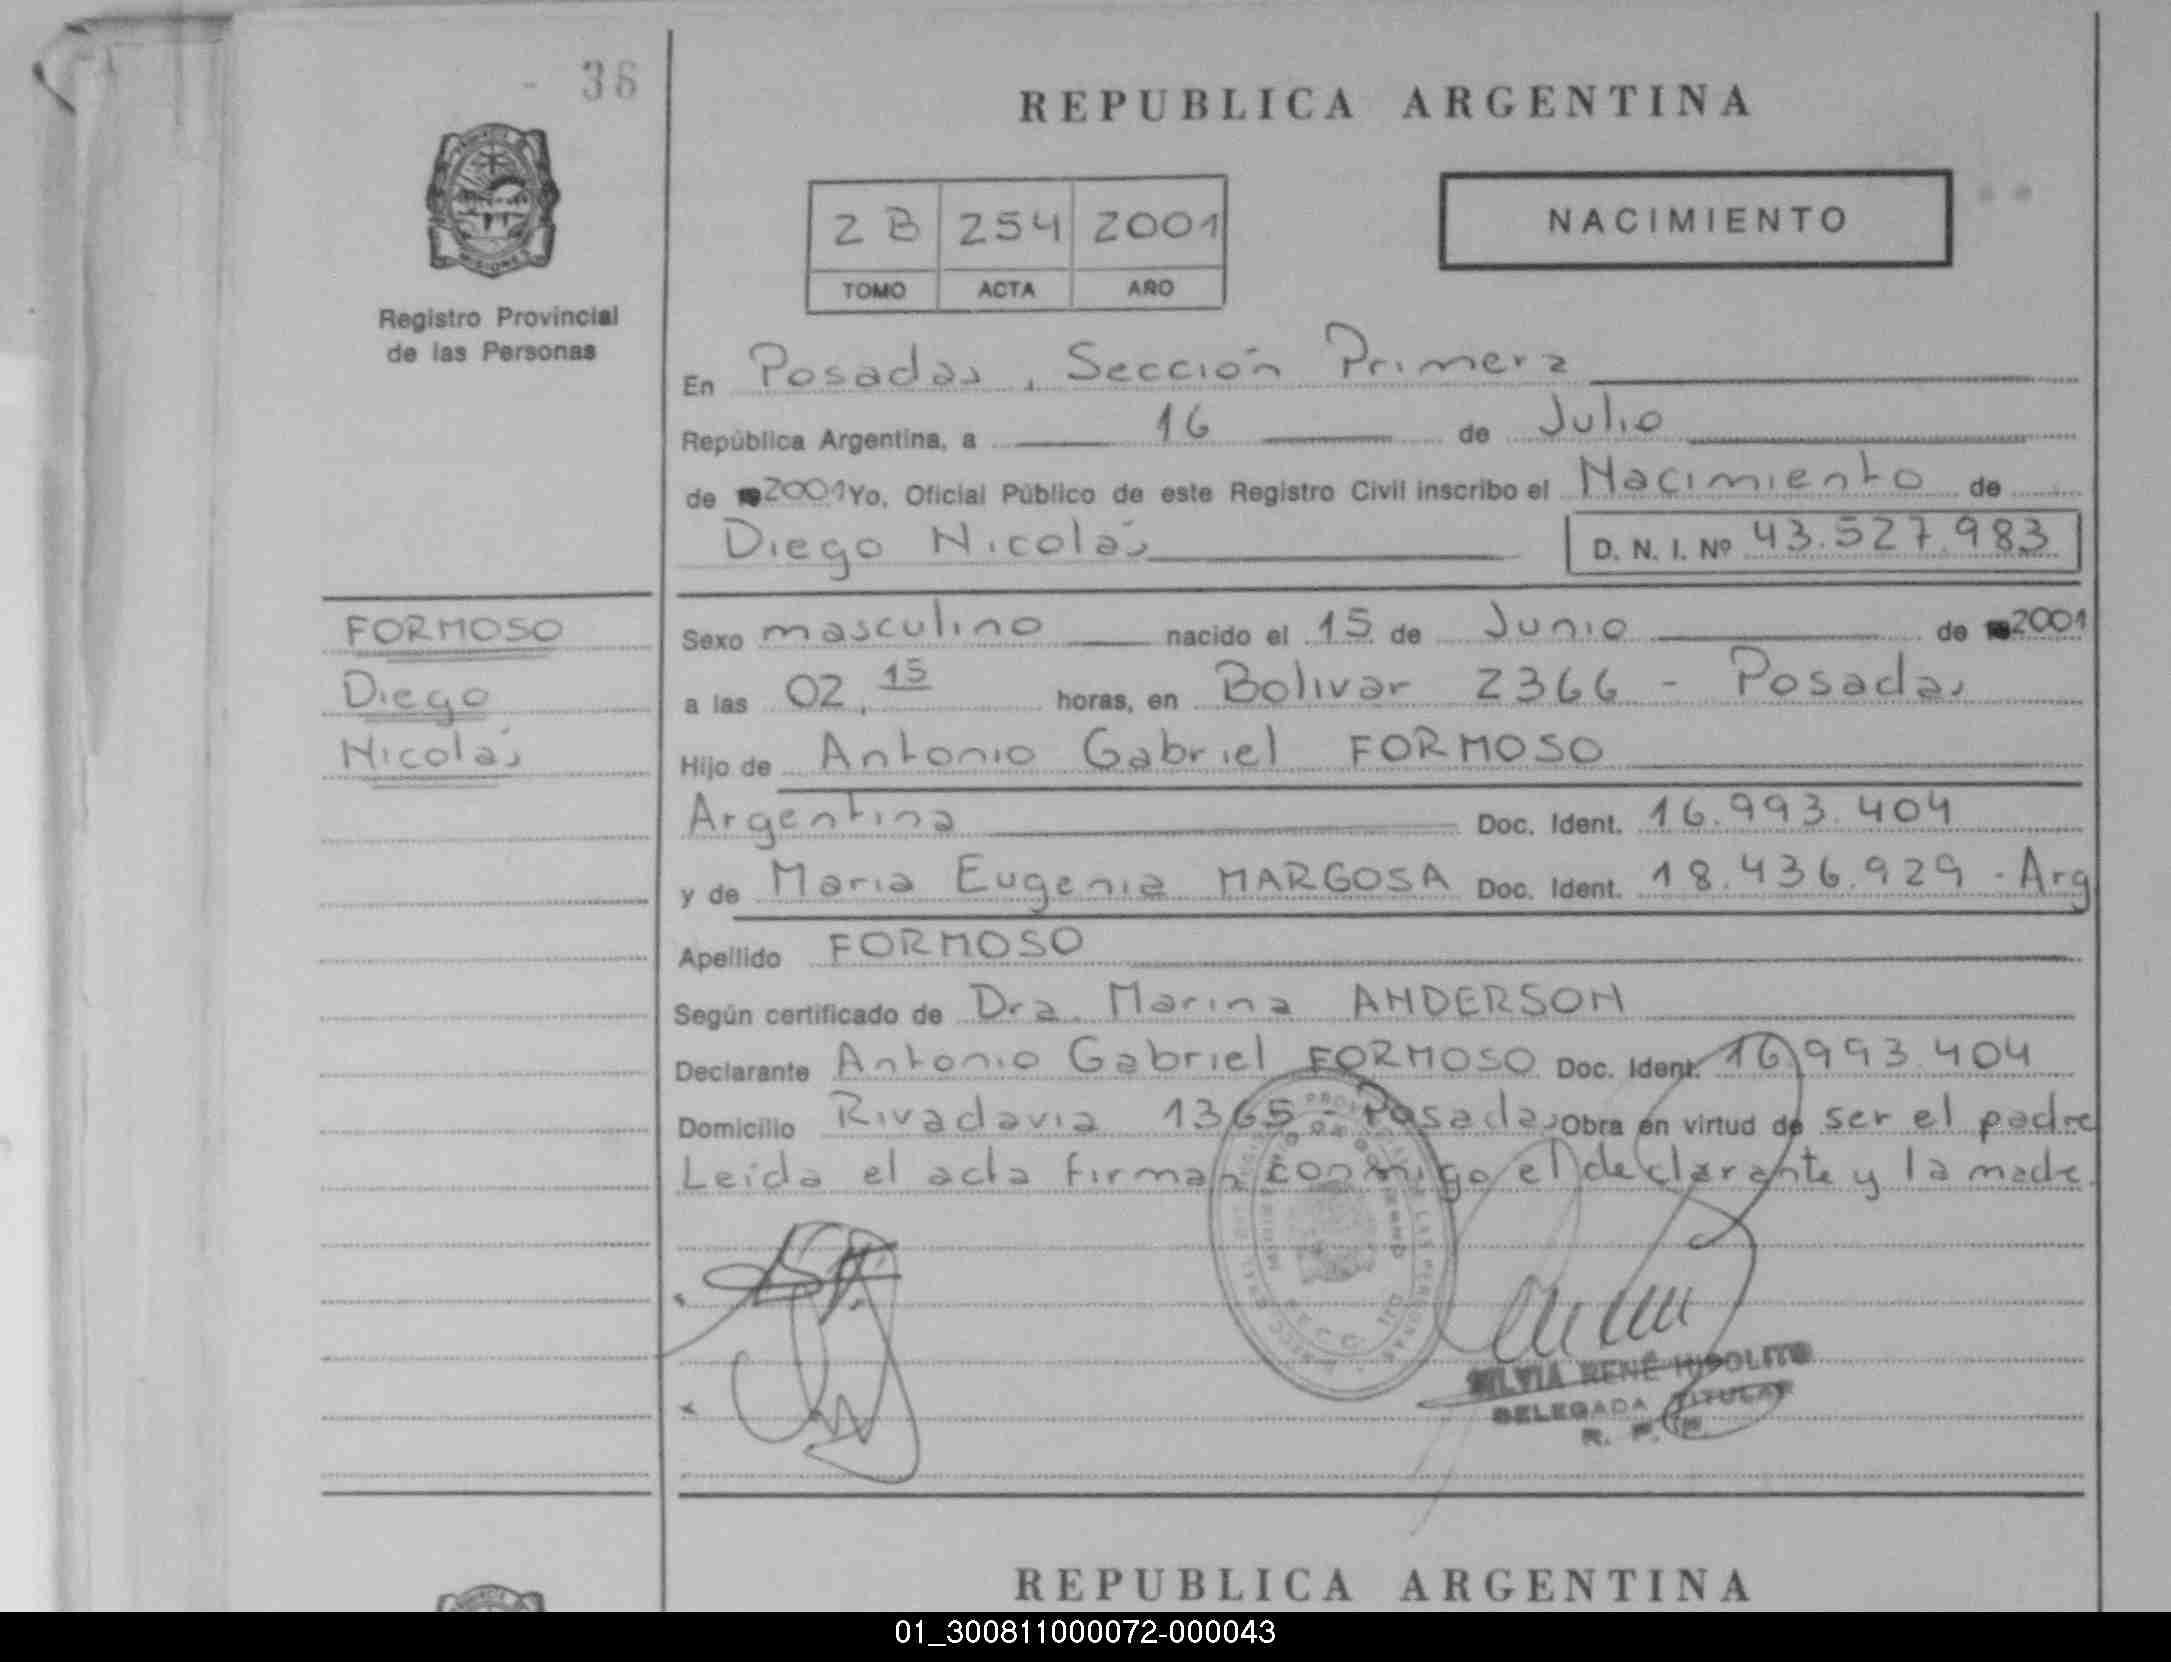 - 36
REPUBLICA ARGENTINA
2 B 254 2001
TOMO ACTA AÑO
NACIMIENTO
MISIONES
Registro Provincial
de las Personas
En Posadas, Sección Primera
República Argentina, a 16 de Julio
de 2001 Yo, Oficial Público de este Registro Civil inscribo el Nacimiento de
Diego Nicolás D. N. I. Nº 43.527.983
FORMOSO
Diego
Nicolás
Sexo masculino nacido el 15 de Junio de 2001
a las 02,15 horas, en Bolivar 2366 - Posadas
Hijo de Antonio Gabriel FORMOSO
Argentina Doc. Ident. 16.993.404
y de Maria Eugenia MARGOSA Doc. Ident. 18.436.929 - Arg
Apellido FORMOSO
Según certificado de Dra. Marina ANDERSON
Declarante Antonio Gabriel FORMOSO Doc. Ident. 16.993.404
Domicilio Rivadavia 1365 - Posadas Obra en virtud de ser el padre
Leída el acta firman conmigo el declarante y la madre.
SILVIA RENÉ HIPOLITO
DELEGADA TITULAR
R. P. P.
REPUBLICA ARGENTINA
01_300811000072-000043